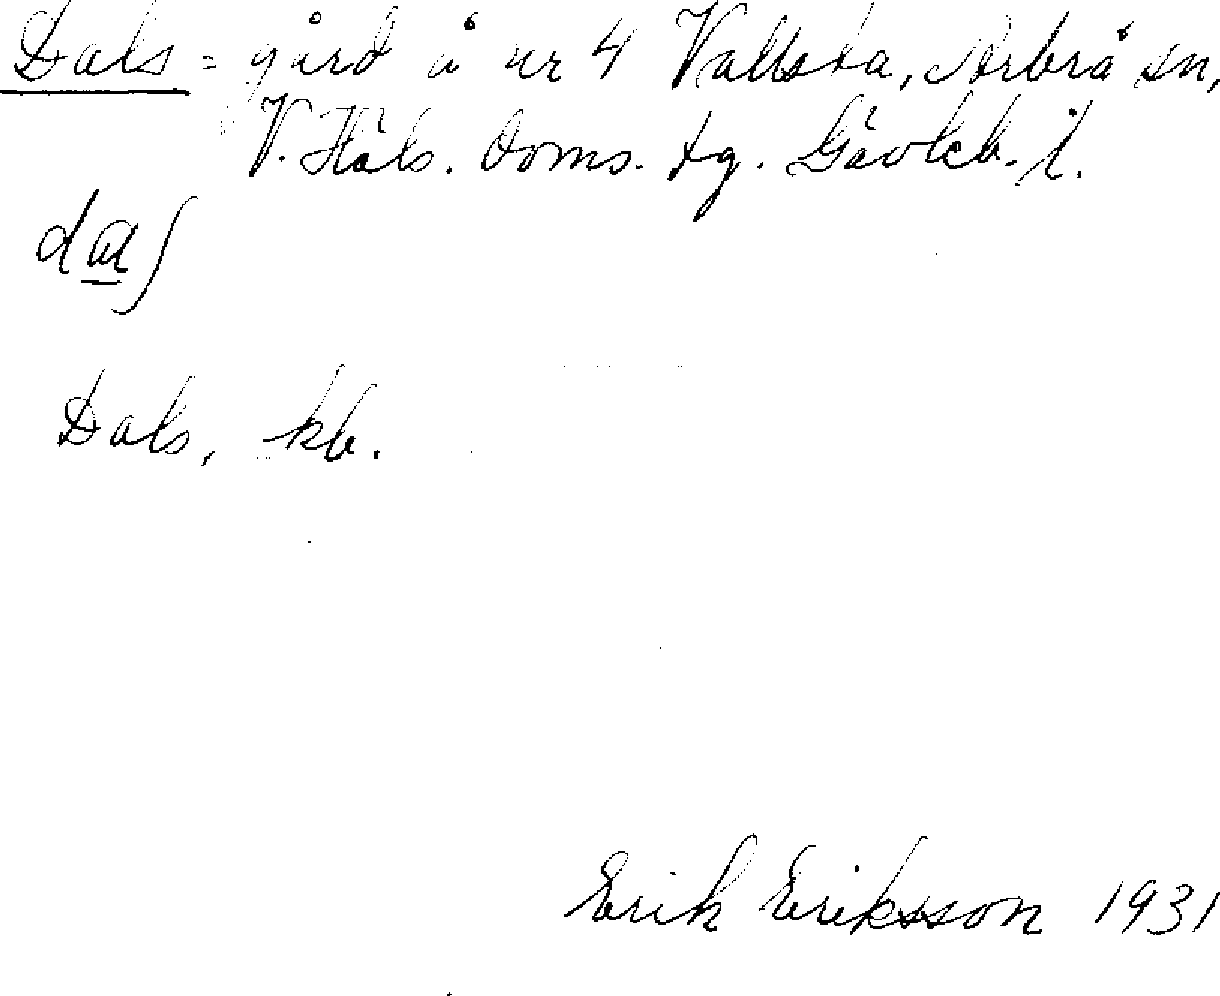 Dals = gård å nr 4 Vallsta, Arbrå sn,
V. Häls. doms. tg. Gävleb. l.
daʃ
Dals, kb.
Erik Eriksson 1931